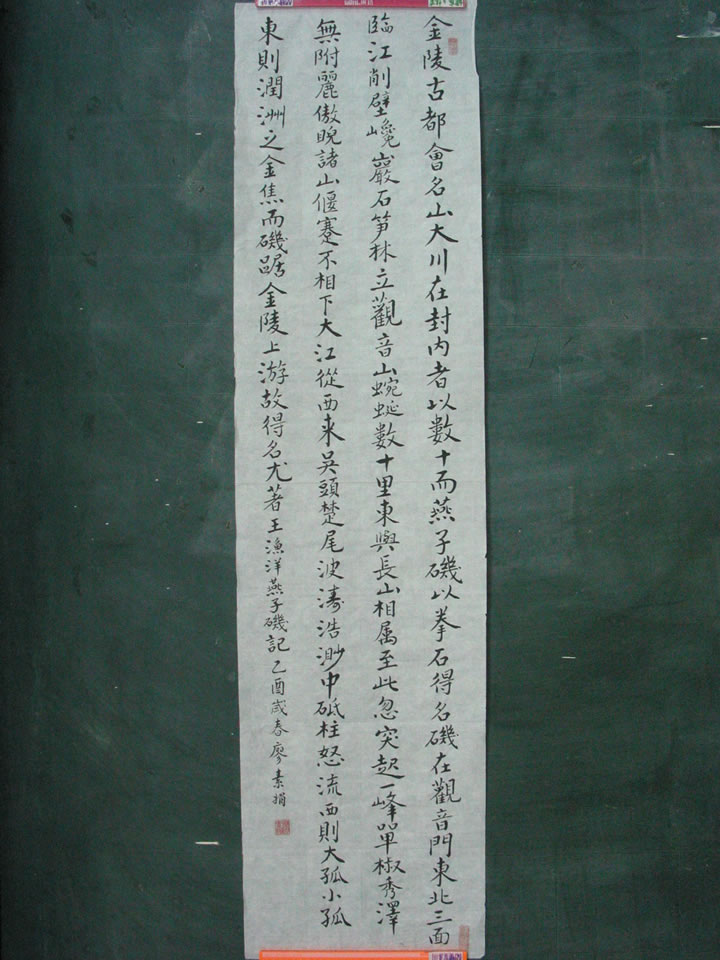 金陵古都會名山大川在封內者以數十而燕子磯以拳石得名磯在觀音門東北三面
臨江削壁巉巖石笋林立觀音山蜿蜒數十里東與長山相属至此忽突起一峰單椒秀澤
無附麗傲睨諸山偃蹇不相下大江從西来吳頭楚尾波濤浩渺中砥柱怒流西則大孤小孤
東則潤洲之金焦而磯踞金陵上游故得名尤著王漁洋燕子磯記乙酉歲春廖素娟